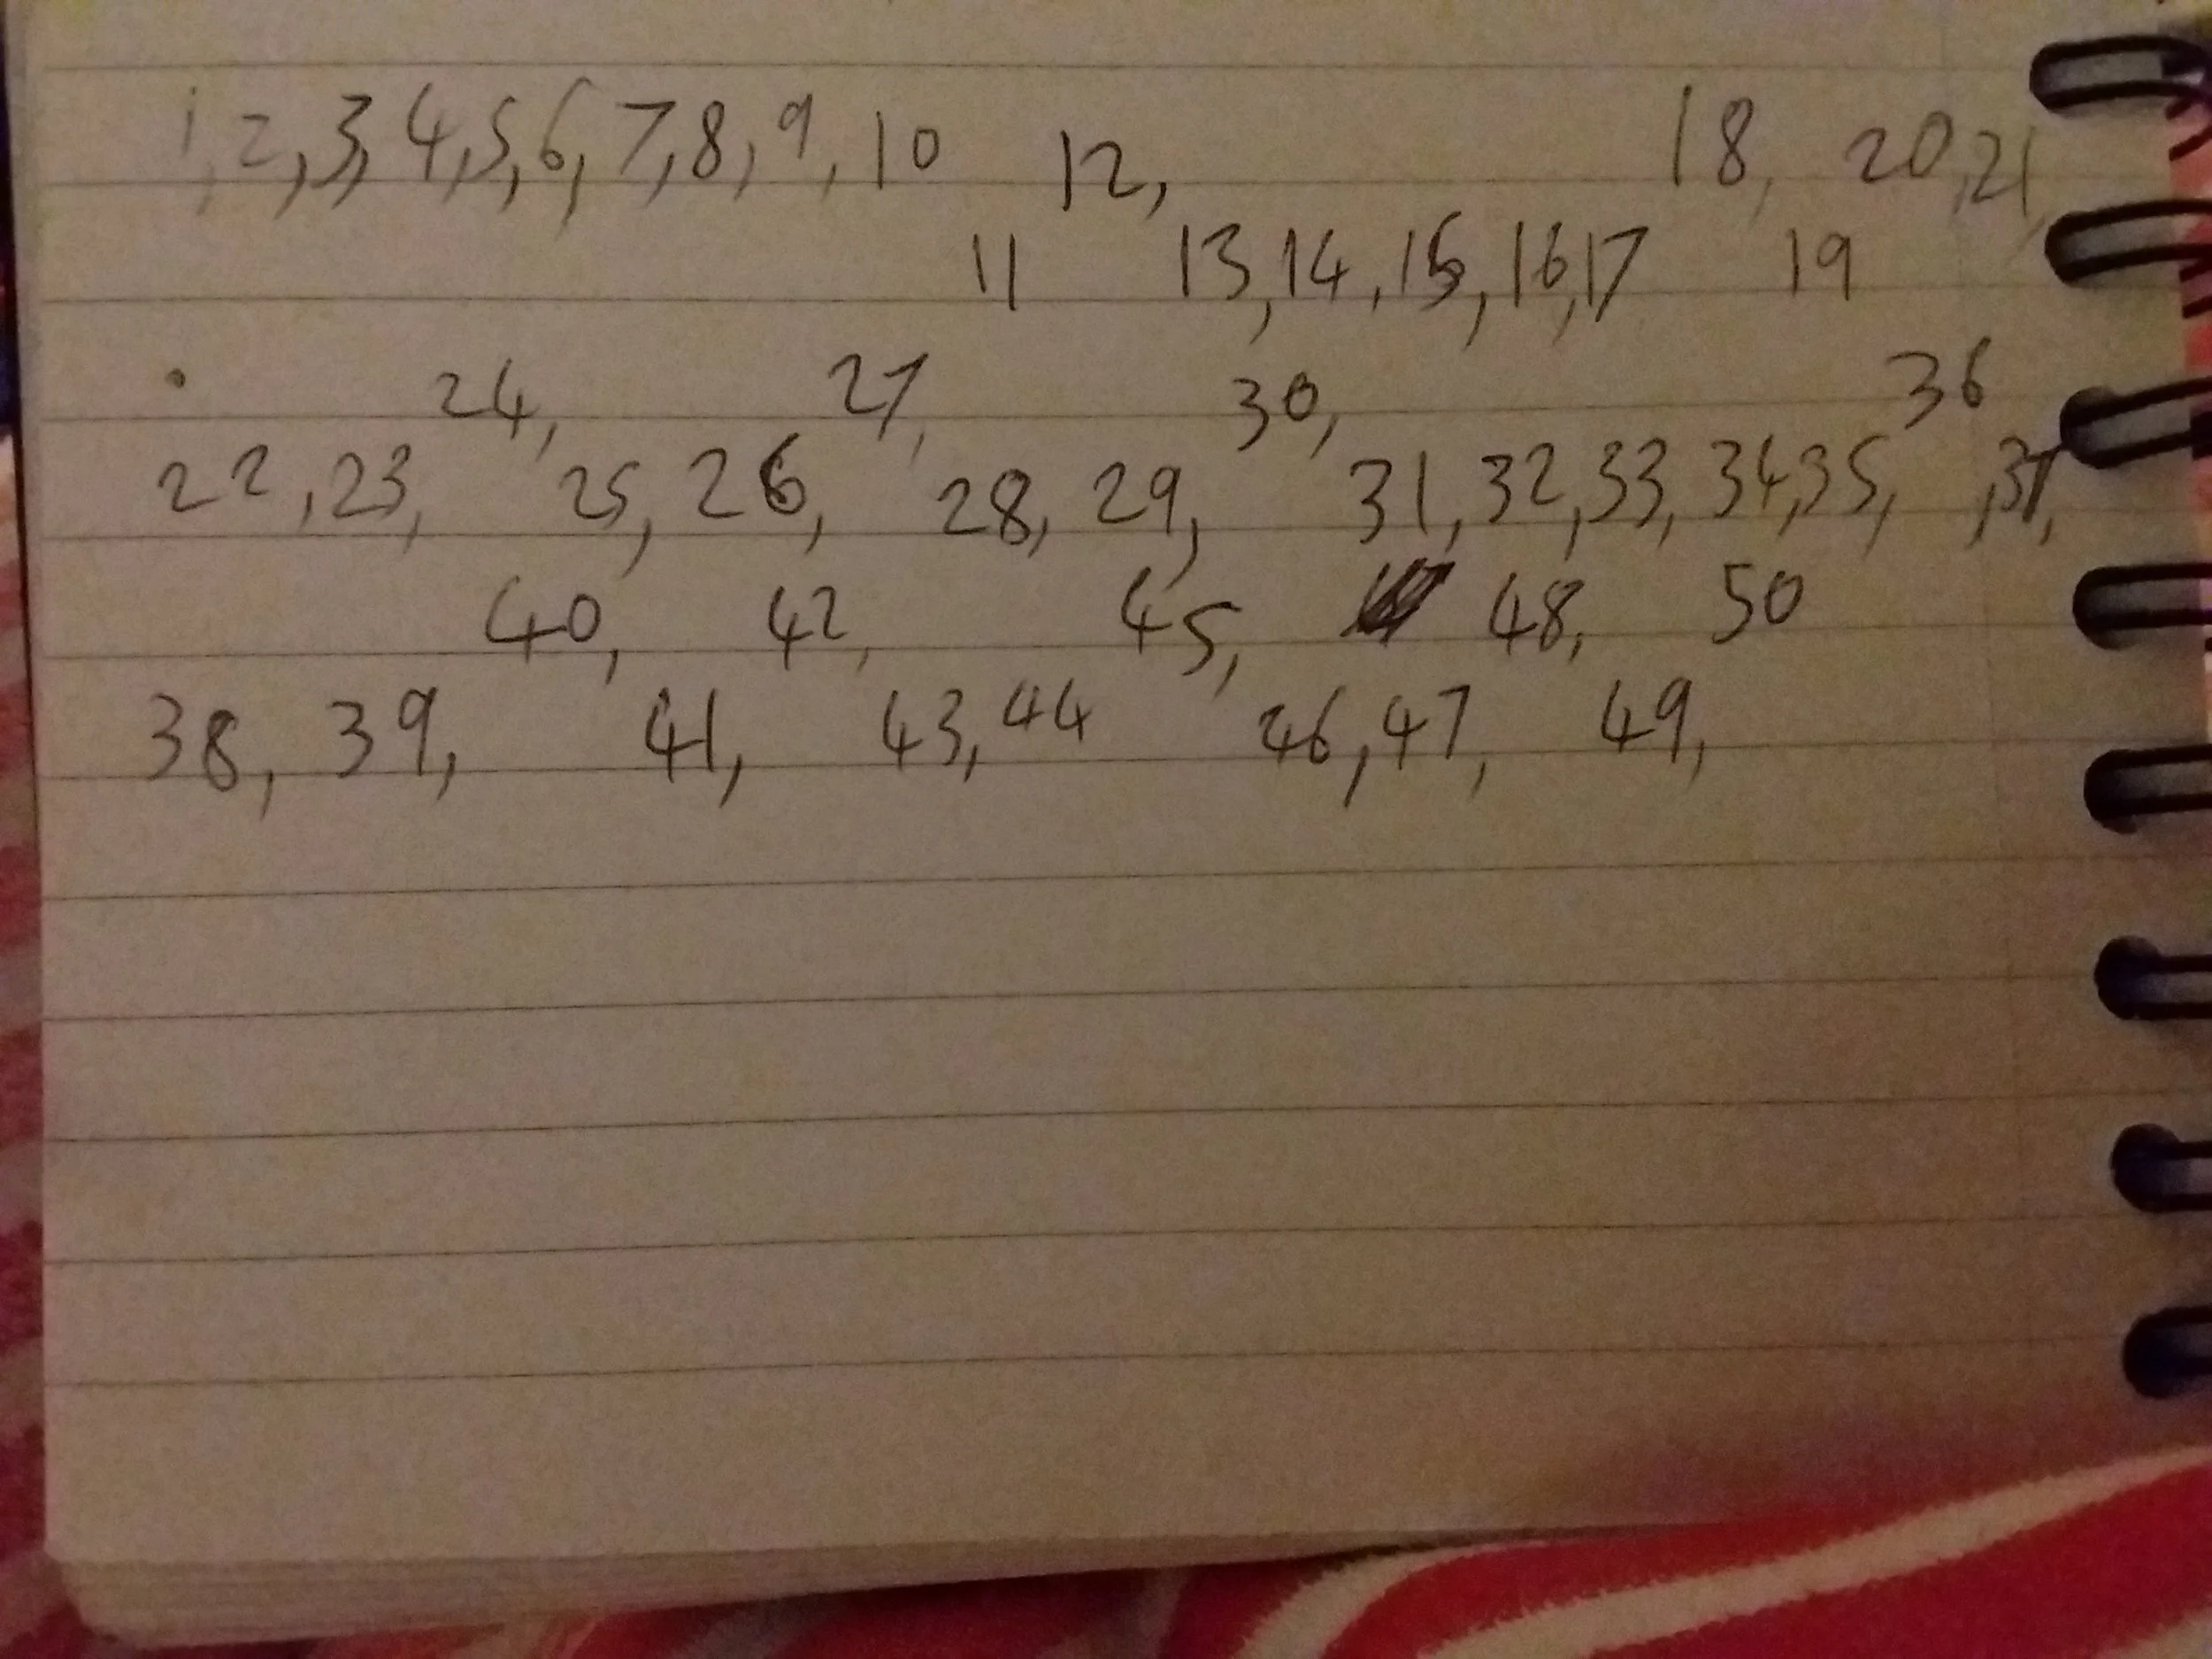 1, 2, 3, 4, 5, 6, 7, 8, 9, 10 12, 18, 20, 21,
11 13, 14, 15, 16, 17 19
24, 27, 30, 36
22, 23, 25, 26, 28, 29, 31, 32, 33, 34, 35, , 37,
40, 42, 45, 48, 50
38, 39, 41, 43, 44 46, 47, 49,